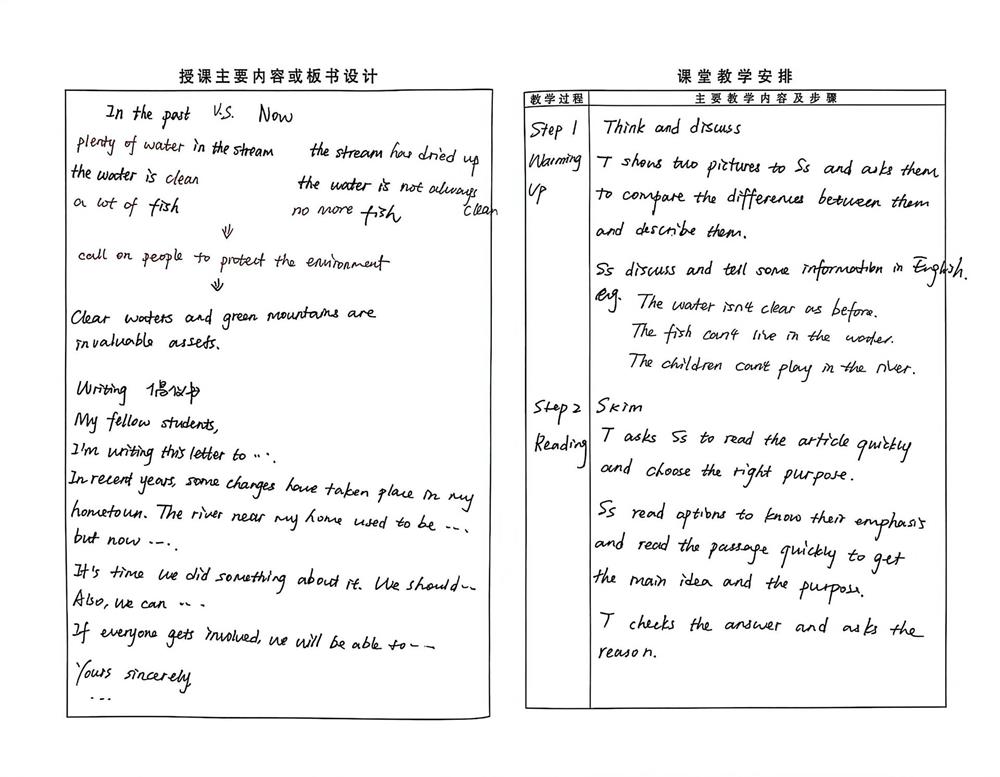 授课主要内容或板书设计
In the past V.S. Now
plenty of water in the stream the stream has dried up
the water is clean the water is not always clean
a lot of fish no more fish
call on people to protect the environment
Clear waters and green mountains are
invaluable assets.
Writing 倡议书
My fellow students,
I'm writing this letter to ....
In recent years, some changes have taken place in my
hometown. The river near my home used to be ....
but now ....
It's time we did something about it. We should ...
Also, we can ...
If everyone gets involved, we will be able to ...
Yours sincerely
...
课堂教学安排
教学过程 主要教学内容及步骤
Step 1 Think and discuss
Warming T shows two pictures to Ss and asks them
Up to compare the differences between them
and describe them.
Ss discuss and tell some information in English.
eg. The water isn't clear as before.
The fish can't live in the water.
The children can't play in the river.
Step 2 Skim
Reading T asks Ss to read the article quickly
and choose the right purpose.
Ss read options to know their emphasis
and read the passage quickly to get
the main idea and the purpose.
T checks the answer and asks the
reason.